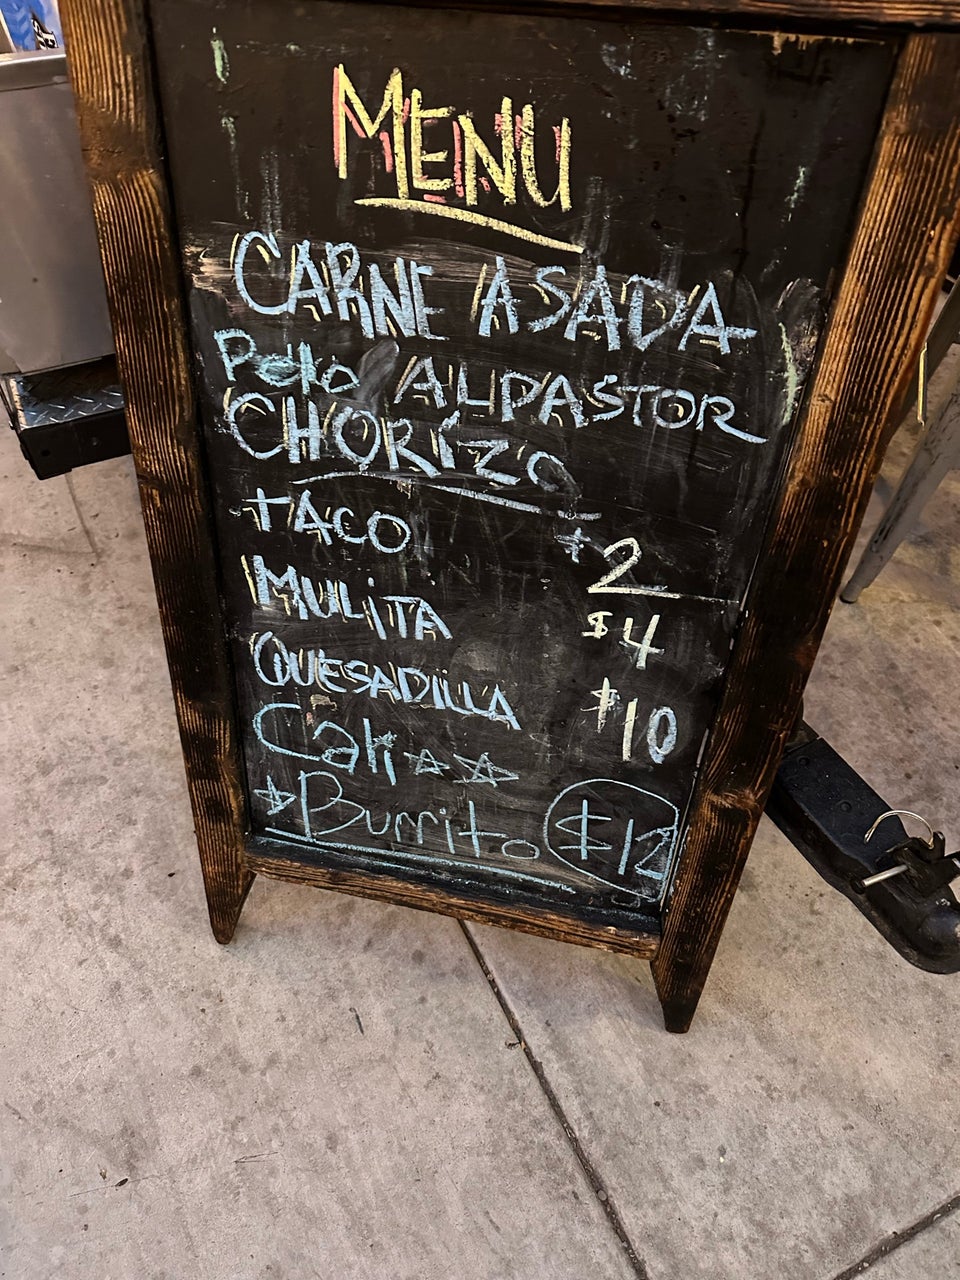 MENU
CARNE ASADA
Pollo ALPASTOR
CHORIZO
TACO $2
MULITA $4
QUESADILLA $10
Cali
Burrito $12